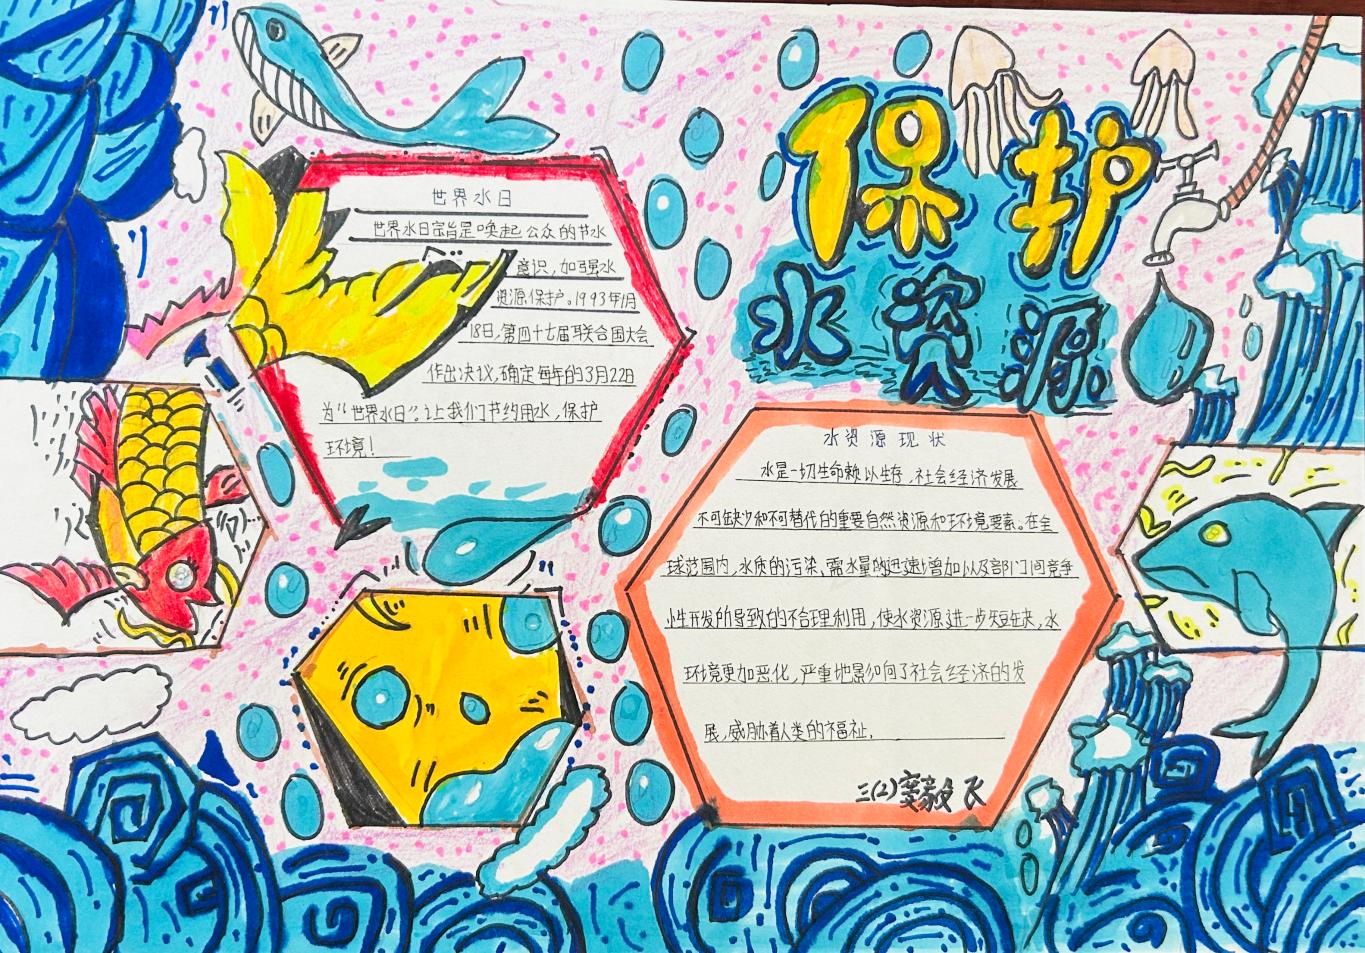 保护
水资源
世界水日
世界水日宗旨是唤起公众的节水
意识，加强水
资源保护。1993年1月
18日，第四十七届联合国大会
作出决议，确定每年的3月22日
为“世界水日”？让我们节约用水，保护
环境！
水资源现状
水是一切生命赖以生存，社会经济发展
不可缺少和不可替代的重要自然资源和环境要素。在全
球范围内，水质的污染、需水量的迅速增加以及部门间竞争
性开发所导致的不合理利用，使水资源进一步短缺，水
环境更加恶化，严重地影响了社会经济的发
展，威胁着人类的福祉．
三(2)